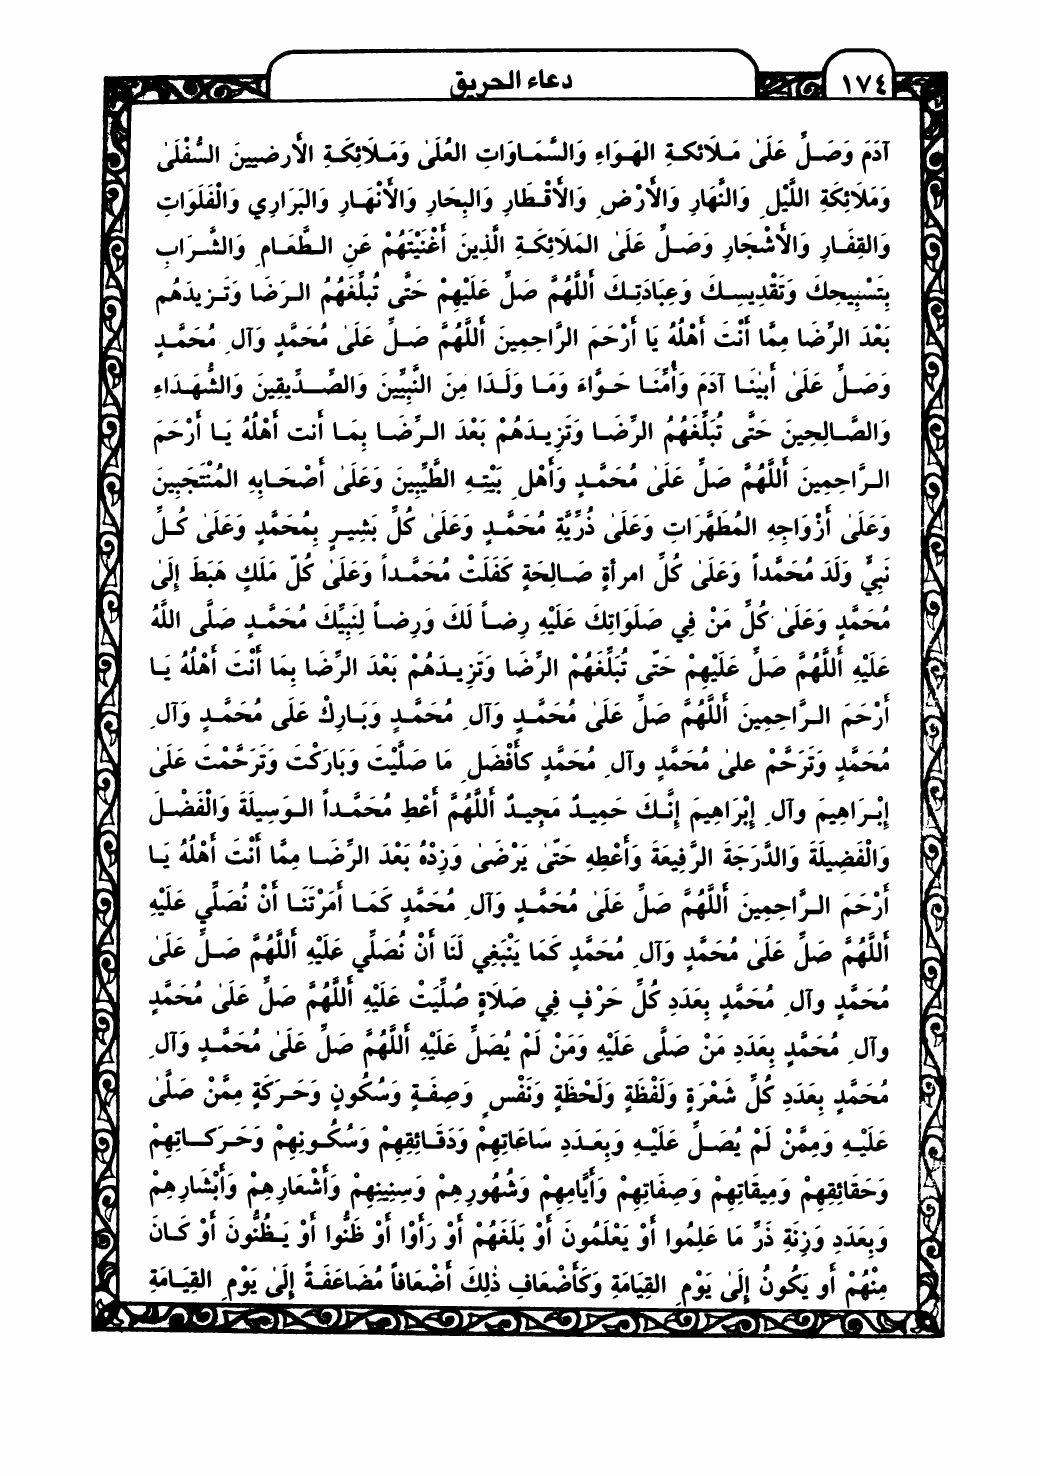 ١٧٤
دعاء الحريق
آدَمَ وَصَلِّ عَلَىٰ مَلَائكةِ الهَوَاءِ وَالسَّمَاوَاتِ العُلَىٰ وَمَلَائِكَةِ الأرضيينَ السُّفْلَىٰ
وَمَلَائِكَةِ اللَّيْلِ وَالنَّهَارِ وَالأَرْضِ وَالأَقْطَارِ وَالبِحَارِ وَالأَنْهَارِ وَالبَرَارِي وَالْفَلَوَاتِ
وَالقِفَارِ وَالأَشْجَارِ وَصَلِّ عَلىٰ المَلَائِكَةِ الَّذِينَ أَغْنَيْتَهُمْ عَنِ الطَّعَامِ وَالشَّرَابِ
بِتَسْبِيحِكَ وَتَقْدِيسِكَ وَعِبَادَتِكَ أَللَّهُمَّ صَلِّ عَلَيْهِمْ حَتَّى تُبلِّغَهُمُ الرَضَا وَتَزيدَهُم
بَعْدَ الرِّضَا مِمَّا أَنْتَ أَهْلُهُ يَا أَرْحَمَ الرَّاحِمِينَ أَللَّهُمَّ صَلِّ عَلىٰ مُحَمَّدٍ وَآلِ مُحَمَّدٍ
وَصَلِّ عَلىٰ أَبيْنَا آدَمَ وَأُمِّنَا حَوَّاءَ وَمَا وَلَدَا مِنَ النَّبِيِّينَ وَالصِّدِّيقِينَ وَالشُّهَدَاءِ
وَالصَّالِحِينَ حَتَّى تُبَلِّغَهُمُ الرِّضَا وَتَزِيدَهُمْ بَعْدَ الرِّضَا بِمَا أَنت أَهْلُهُ يَا أَرْحَمَ
الرَّاحِمِينَ أَللَّهُمَّ صَلِّ عَلىٰ مُحَمَّدٍ وَأَهْلِ بَيْتِهِ الطَّيِّبِينَ وَعَلىٰ أَصْحَابِهِ المُنْتَجَبِينَ
وَعَلىٰ أَزْوَاجِهِ المُطَهَّرَاتِ وَعَلىٰ ذُرِّيَّةِ مُحَمَّدٍ وَعَلىٰ كُلِّ بَشِيرٍ بِمُحَمَّدٍ وَعَلىٰ كُلِّ
نَبِيٍّ وَلَدَ مُحَمَّداً وَعَلىٰ كُلِّ امرأةٍ صَالِحَةٍ كَفَلَتْ مُحَمَّداً وَعَلىٰ كُلِّ مَلَكٍ هَبَطَ إِلَىٰ
مُحَمَّدٍ وَعَلىٰ كُلِّ مَنْ فِي صَلَوَاتِكَ عَلَيْهِ رِضاً لَكَ وَرِضاً لِنَبِيِّكَ مُحَمَّدٍ صَلَّى اللَّهُ
عَلَيْهِ أَللَّهُمَّ صَلِّ عَلَيْهِمْ حَتّى تُبَلِّغَهُمْ الرِّضَا وَتَزِيدَهُمْ بَعْدَ الرِّضَا بِمَا أَنْتَ أَهْلُهُ يَا
أَرْحَمَ الرَّاحِمِينَ أَللَّهُمَّ صَلِّ عَلىٰ مُحَمَّدٍ وَآلِ مُحَمَّدٍ وَبَارِكْ عَلَى مُحَمَّدٍ وَآلِ
مُحَمَّدٍ وَتَرَحَّمْ علىٰ مُحَمَّدٍ وآلِ مُحَمَّدٍ كأَفْضَلِ مَا صَلَّيْتَ وَبَارَكْتَ وَتَرَحَّمْتَ عَلَىٰ
إِبْرَاهِيمَ وآلِ إِبْرَاهِيمَ إِنَّكَ حَمِيدٌ مَجِيدٌ أَللَّهُمَّ أَعْطِ مُحَمَّداً الوَسِيلَةَ وَالْفَضْلَ
وَالْفَضِيلَةَ وَالدَّرَجَةَ الرَّفِيعَةَ وَأَعْطِهِ حَتّىٰ يَرْضَىٰ وَزِدْهُ بَعْدَ الرِّضَا مِمَّا أَنْتَ أَهْلُهُ يَا
أَرْحَمَ الرَّاحِمِينَ أَللَّهُمَّ صَلِّ عَلَىٰ مُحَمَّدٍ وَآلِ مُحَمَّدٍ كَمَا أَمَرْتَنَا أَنْ نُصَلِّي عَلَيْهِ
أَللَّهُمَّ صَلِّ عَلَىٰ مُحَمَّدٍ وَآلِ مُحَمَّدٍ كَمَا يَنْبَغِي لَنَا أَنْ نُصَلِّي عَلَيْهِ أَللَّهُمَّ صَلِّ عَلَىٰ
مُحَمَّدٍ وآلِ مُحَمَّدٍ بِعَدَدِ كُلِّ حَرْفٍ فِي صَلَاةٍ صُلِّيَتْ عَلَيْهِ أَللَّهُمَّ صَلِّ عَلَىٰ مُحَمَّدٍ
وآلِ مُحَمَّدٍ بِعَدَدِ مَنْ صَلَّى عَلَيْهِ وَمَنْ لَمْ يُصَلِّ عَلَيْهِ أَللَّهُمَّ صَلِّ عَلىٰ مُحَمَّدٍ وَآلِ
مُحَمَّدٍ بِعَدَدِ كُلِّ شَعْرَةٍ وَلَفْظَةٍ وَلَحْظَةٍ وَنَفْسٍ وَصِفَةٍ وَسُكُونٍ وَحَرَكَةٍ مِمَّنْ صَلَّىٰ
عَلَيْهِ وَمِمَّنْ لَمْ يُصَلِّ عَلَيْهِ وَبِعَدَدِ سَاعَاتِهِمْ وَدَقَائِقِهِمْ وَسُكُونِهِمْ وَحَرَكَاتِهِمْ
وَحَقَائِقِهِمْ وَمِيقَاتِهِمْ وَصِفَاتِهِمْ وَأَيَّامِهِمْ وَشُهُورِهِمْ وَسِنِينِهِمْ وَأَشْعَارِهِمْ وَأَبْشَارِهِمْ
وَبِعَدَدِ وَزِنَةِ ذَرِّ مَا عَلِمُوا أَوْ يَعْلَمُونَ أَوْ بَلَغَهُمْ أَوْ رَأَوْا أَوْ ظَنُّوا أَوْ يَظُنُّونَ أَوْ كَانَ
مِنْهُمْ أَو يَكُونُ إِلَىٰ يَوْمِ القِيَامَةِ وَكَأَضْعَافِ ذٰلِكَ أَضْعَافاً مُضَاعَفَةً إِلىٰ يَوْمِ القِيَامَةِ